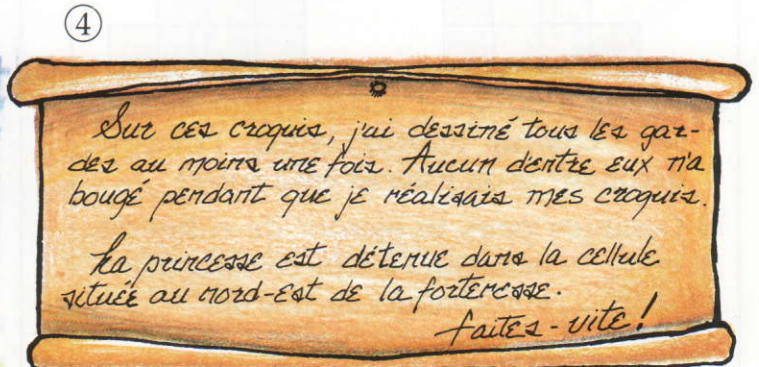 ④
Sur ces croquis, j'ai dessiné tous les gar-
des au moins une fois. Aucun d'entre eux n'a
bougé pendant que je réalisais mes croquis.
La princesse est détenue dans la cellule
située au nord-est de la forteresse.
faites-vite!